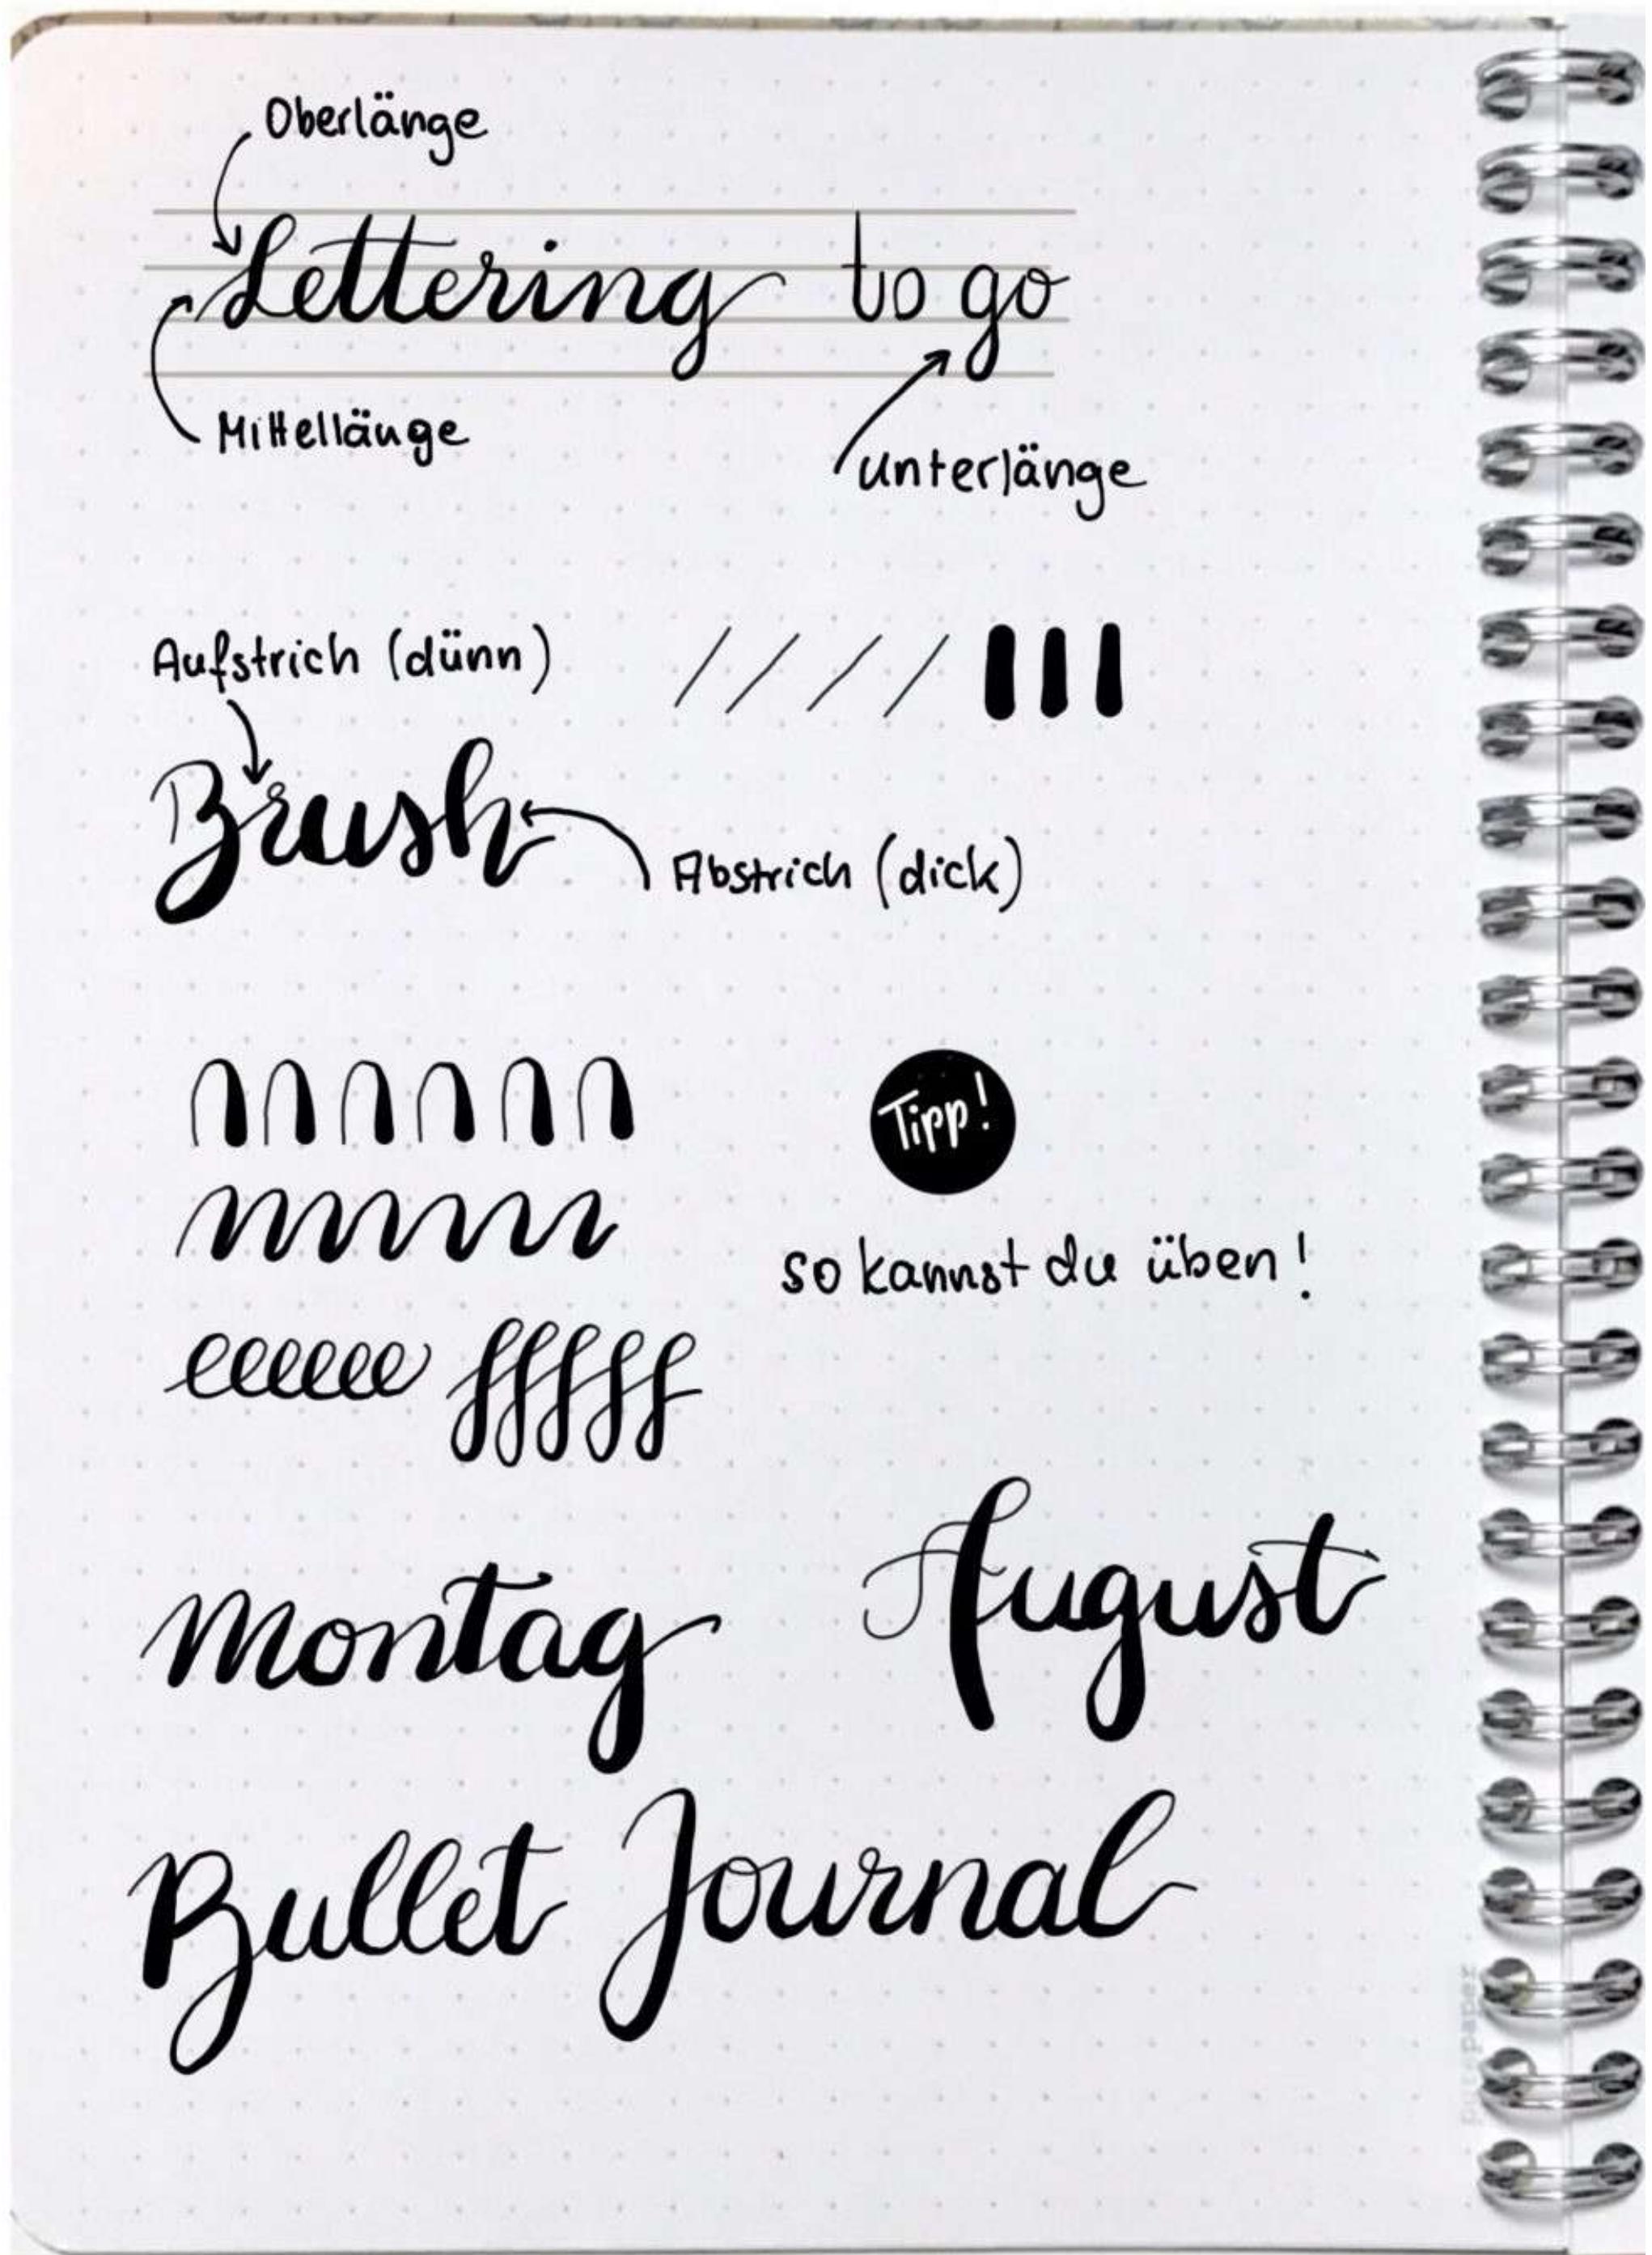 Oberlänge
Lettering to go
Mittellänge
unterlänge
Aufstrich (dünn)
Brush
Abstrich (dick)
Tipp!
so kannst du üben!
eeeeeee fffff
Montag
August
Bullet Journal